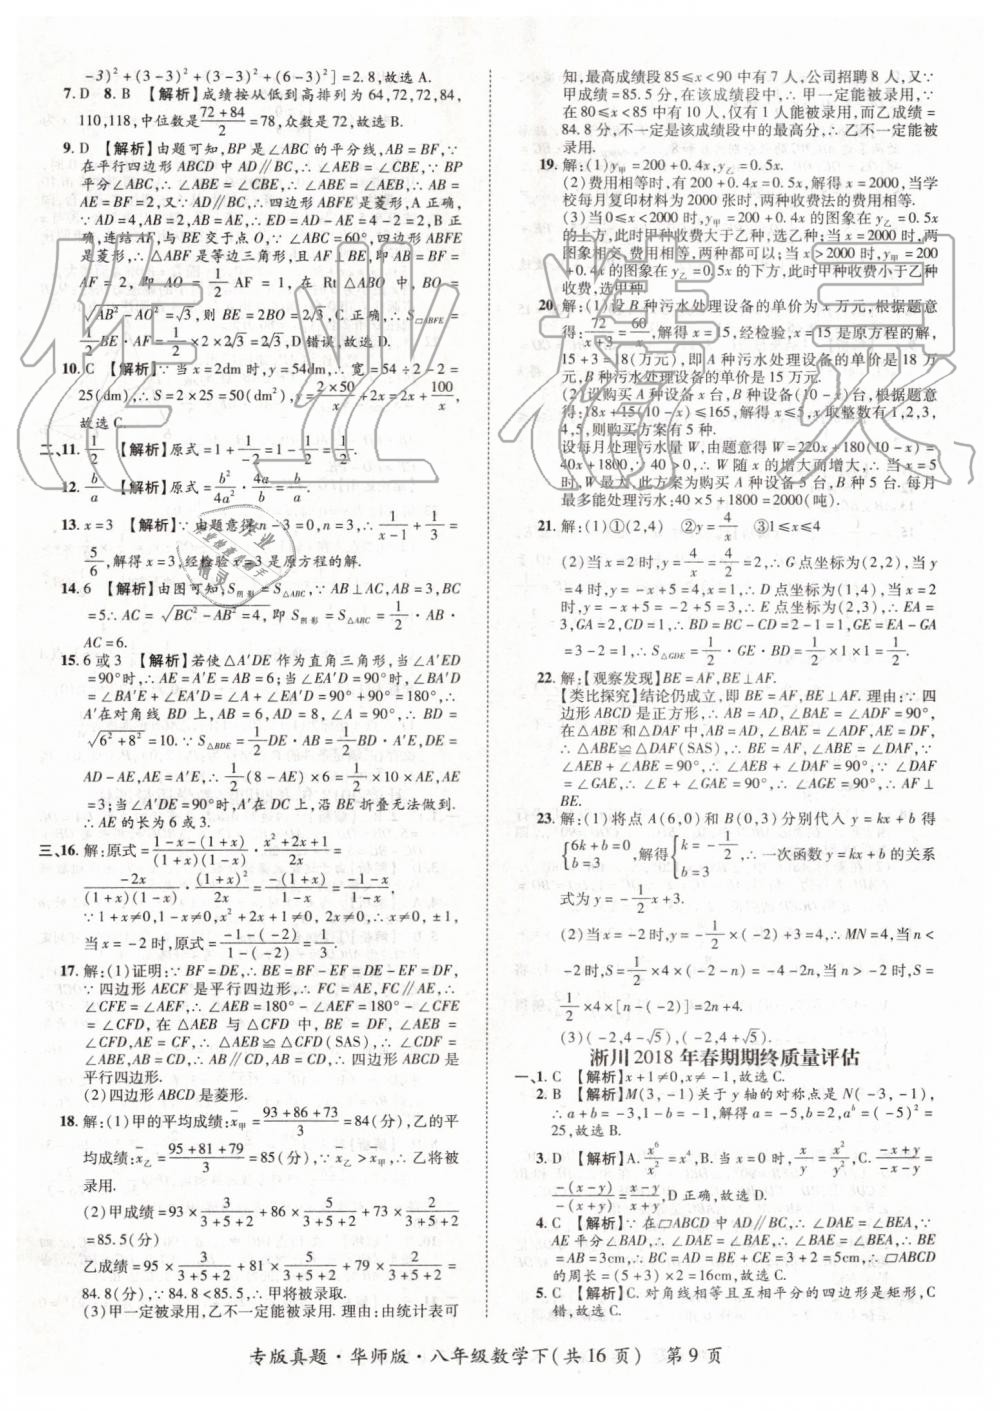 -3)²+(3-3)²+(3-3)²+(6-3)²]=2.8,故选A.
7. D 8. B 【解析】成绩按从低到高排列为64,72,72,84,
110,118,中位数是(72+84)/2=78,众数是72,故选B.
9. D 【解析】由题可知,BP是∠ABC的平分线,AB=BF,∵
在平行四边形ABCD中AD//BC,∴∠AEB=∠CBE,∵BP
平分∠ABC,∴∠ABE=∠CBE,∴∠ABE=∠AEB,∴AB=
AE=BF=2,又∵AD//BC,∴四边形ABFE是菱形,A正确,
∵AD=4,AB=2,AB=AE,∴ED=AD-AE=4-2=2,B正
确,连结AF,与BE交于点O,∵∠ABC=60°,四边形ABFE
是菱形,∴△ABF是等边三角形,且AF⊥BE,即AB=BF=
AF=2,即AO=1/2AF=1,在Rt△ABO中,BO=
√(AB²-AO²)=√3,则BE=2BO=2√3,C正确,∴S▱ABFE=
1/2BE·AF=1/2×2×2√3=2√3,D错误,故选D.
10. C 【解析】∵当x=2dm时,y=54dm,∴宽=54÷2-2=
25(dm),∴S=2×25=50(dm²),y=(2×50)/x+2x=2x+100/x,
故选C.
二、11. 1/2 【解析】原式=1+1/(-2)=1-1/2=1/2.
12. b/a 【解析】原式=b²/4a²·4a/b=b/a.
13. x=3 【解析】∵由题意得n-3=0,n=3,∴1/(x-1)+1/3=
5/6,解得x=3,经检验x=3是原方程的解.
14. 6 【解析】由图可知,S阴影=S△ABC,∵AB⊥AC,AB=3,BC
=5∴AC=√(BC²-AB²)=4,即S阴影=S△ABC=1/2·AB·
AC=6.
15. 6或3 【解析】若使△A′DE作为直角三角形,当∠A′ED
=90°时,∴AE=A′E=AB=6;当∠EA′D=90°时,∠BA′D
=∠BA′E+∠EA′D=∠A+∠EA′D=90°+90°=180°,∴
A′在对角线BD上,AB=6,AD=8,∠A=90°,∴BD=
√(6²+8²)=10.∵S△BDE=1/2DE·AB=1/2BD·A′E,DE=
AD-AE,AE=A′E,∴1/2(8-AE)×6=1/2×10×AE,AE
=3;当∠A′DE=90°时,A′在DC上,沿BE折叠无法做到.
∴AE的长为6或3.
三、16. 解:原式=(1-x-(1+x))/((1+x)(1-x))·(x²+2x+1)/2x=
-2x/((1+x)(1-x))·(1+x)²/2x=-(1+x)/(1-x)=(-1-x)/(1-x).
∵1+x≠0,1-x≠0,x²+2x+1≠0,2x≠0,∴x≠0,±1,
当x=-2时,原式=(-1-(-2))/(1-(-2))=1/3.
17. 解:(1)证明:∵BF=DE,∴BE=BF-EF=DE-EF=DF,
∵四边形AECF是平行四边形,∴FC=AE,FC//AE,∴
∠CFE=∠AEF,∴∠AEB=180°-∠AEF=180°-∠CFE
=∠CFD,在△AEB与△CFD中,BE=DF,∠AEB=
∠CFD,AE=CF,∴△AEB≌△CFD(SAS),∴∠CDF=
∠ABE,AB=CD,∴AB//CD,AB=CD,∴四边形ABCD是
平行四边形.
(2)四边形ABCD是菱形.
18. 解:(1)甲的平均成绩:x̄甲=(93+86+73)/3=84(分),乙的平
均成绩:x̄乙=(95+81+79)/3=85(分),∵x̄乙>x̄甲,∴乙将被
录用.
(2)甲成绩=93×3/(3+5+2)+86×5/(3+5+2)+73×2/(3+5+2)
=85.5(分)
乙成绩=95×3/(3+5+2)+81×5/(3+5+2)+79×2/(3+5+2)=
84.8(分),∵84.8<85.5,∴甲将被录取.
(3)甲一定被录用,乙不一定能被录用.理由:由统计表可
知,最高成绩段85≤x<90中有7人,公司招聘8人,又∵
甲成绩=85.5分,在该成绩段中,∴甲一定能被录用,∵
在80≤x<85中有10人,仅有1人能被录用,而乙成绩=
84.8分,不一定是该成绩段中的最高分,∴乙不一定能被
录用.
19. 解:(1)y甲=200+0.4x,y乙=0.5x.
(2)费用相等时,有200+0.4x=0.5x,解得x=2000,当学
校每月复印材料为2000张时,两种收费法的费用相等.
(3)当0≤x<2000时,y甲=200+0.4x的图象在y乙=0.5x
的上方,此时甲种收费大于乙种,选乙种;当x=2000时,两
图象相交,费用相等,两种都可以;当x>2000时,y甲=200
+0.4x的图象在y乙=0.5x的下方,此时甲种收费小于乙种
收费,选甲种.
20. 解:(1)设B种污水处理设备的单价为x万元,根据题意
得:72/(x+3)=60/x,解得x=15,经检验,x=15是原方程的解,
15+3=18(万元),即A种污水处理设备的单价是18万
元,B种污水处理设备的单价是15万元.
(2)设购买A种设备x台,B种设备(10-x)台,根据题意
得:18x+15(10-x)≤165,解得x≤5,x取整数有1,2,3,
4,5,则购买方案有5种.
设每月处理污水量W,由题意得W=220x+180(10-x)=
40x+1800,∵40>0,∴W随x的增大而增大,∴当x=5
时,W最大,此方案为购买A种设备5台,B种5台.每月
最多能处理污水:40×5+1800=2000(吨).
21. 解:(1)①(2,4) ②y=4/x ③1≤x≤4
(2)当x=2时,y=4/x=4/2=2,∴G点坐标为(2,2),当y
=4时,-x+5=4,x=1,∴D点坐标为(1,4),当x=2
时,y=-x+5=-2+5=3,∴E点坐标为(2,3),∴EA=
3,GA=2,CD=1,∴BD=BC-CD=2-1=1,GE=EA-GA
=3-2=1,∴S△GDE=1/2·GE·BD=1/2×1×1=1/2.
22. 解:【观察发现】BE=AF,BE⊥AF.
【类比探究】结论仍成立,即BE=AF,BE⊥AF.理由:∵四
边形ABCD是正方形,∴AB=AD,∠BAE=∠ADF=90°,
在△ABE与△DAF中,AB=AD,∠BAE=∠ADF,AE=DF,
∴△ABE≌△DAF(SAS),∴BE=AF,∠ABE=∠DAF,∵
∠AEB+∠ABE=90°,∴∠AEB+∠DAF=90°,∵∠DAF
=∠GAE,∴∠E+∠GAE=90°,∴∠AGE=90°,∴AF⊥
BE.
23. 解:(1)将点A(6,0)和B(0,3)分别代入y=kx+b得
{6k+b=0 b=3,解得{k=-1/2 b=3,∴一次函数y=kx+b的关系
式为y=-1/2x+3.
(2)当x=-2时,y=-1/2×(-2)+3=4,∴MN=4,当n<
-2时,S=1/2×4×(-2-n)=-4-2n,当n>-2时,S=
1/2×4×[n-(-2)]=2n+4.
(3)(-2,4-√5),(-2,4+√5).
淅川2018年春期期终质量评估
一、1. C 【解析】x+1≠0,x≠-1,故选C.
2. B 【解析】M(3,-1)关于y轴的对称点是N(-3,-1),
∴a+b=-3,1-b=-1,解得a=-5,b=2,aᵇ=(-5)²=
25,故选B.
3. D 【解析】A.x⁶/x²=x⁴,B.当x=0时,无意义,C.(-x+y)/(-x-y)=
-(x-y)/-(x+y)=(x-y)/(x+y),D正确,故选D.
4. C 【解析】∵在▱ABCD中AD//BC,∴∠DAE=∠BEA,∵
AE平分∠BAD,∴∠BAE=∠DAE,∴∠BAE=∠BEA,∴BE
=AB=3cm,∴BC=AD=BE+CE=3+2=5cm,∴▱ABCD
的周长=(5+3)×2=16cm,故选C.
5. C 【解析】C.对角线相等且互相平分的四边形是矩形,C
错,故选C.
专版真题·华师版·八年级数学下(共16页) 第9页